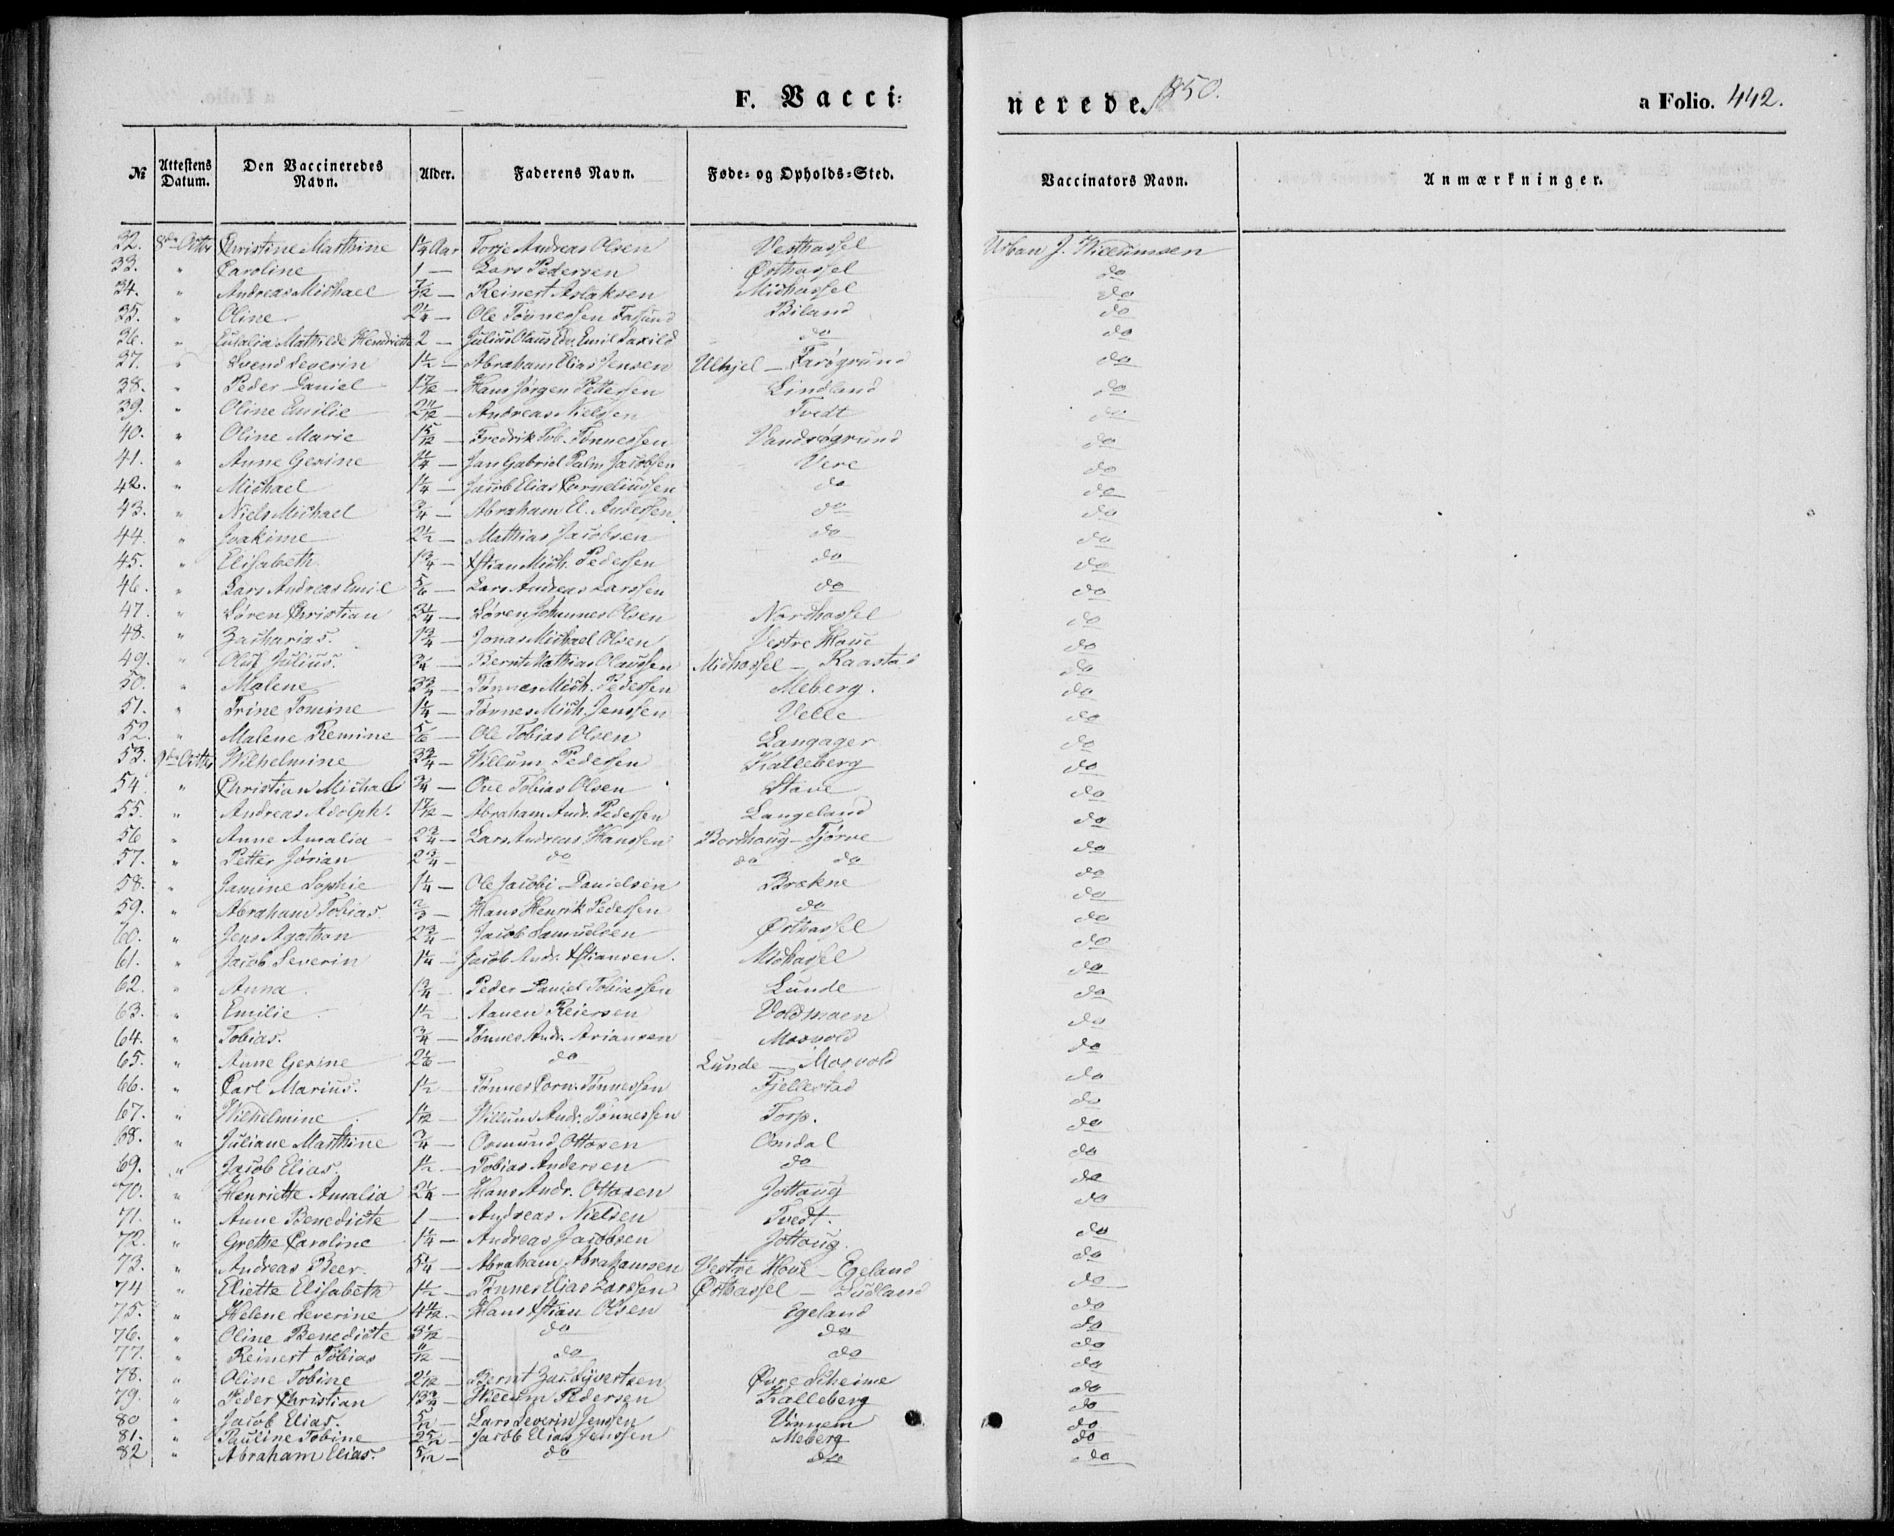 F. Vaccinerede. 1850. a Folio. 442.
№ Attestens Datum. Den Vaccineredes Navn. Alder. Faderens Navn. Føde- og Opholds-Sted. Vaccinators Navn. Anmærkninger.
32. 8de Octbr Christine Marthine 1 1/4 Aar Torje Andreas Olsen Vesthassel Urban J. Willumsen
33. " Caroline 1 — Lars Pedersen Østhassel do
34. " Andreas Michael 7/12 — Reinert Aslaksen Midhassel do
35. " Oline 2 1/4 — Ole Tønnessen Farsund Biland do
36. " Eulalia Mathilde Hendriette 2 — Julius Olaus Edv. Emil Saxild do do
37. " Svend Severin 1 1/2 — Abraham Elias Jensen Ulhjel — Farøgrund do
38. " Peder Daniel 1 7/12 — Hans Jørgen Pettersen Lindland do
39. " Oline Emilie 2 11/12 — Andreas Nielsen Tvedt do
40. " Oline Marie 1 5/12 — Fredrik Tob. Tønnessen Vandsøgrund do
41. " Anne Gesine 1 1/4 — Jan Gabriel Palm Jacobsen Vere do
42. " Michael 1 1/4 — Jacob Elias Corneliussen do do
43. " Niels Michael 3/4 — Abraham El. Andersen do do
44. " Joakime 2 1/2 — Mathias Jacobsen do do
45. " Elisabeth 1 3/4 — Xstian Mich. Pedersen do do
46. " Lars Andreas Emil 5/6 — Lars Andreas Larssen do do
47. " Søren Christian 3 1/4 — Søren Johannes Olsen Nordhassel do
48. " Zacharias. 1 3/4 — Jonas Michael Olsen Vestre Houe do
49. " Oluf Julius. 3/4 — Bernt Mathias Olaussen Midhassel — Raastad do
50. " Malene 3 3/4 — Tønnes Mich. Pedersen Meberg. do
51. " Trine Tomine 1 1/4 — Tønnes Mich. Jenssen Velle do
52. " Malene Remine 5/6 — Ole Tobias Olsen Langager do
53. 9de Octbr Wilhelmine 3 3/4 — Willum Pedersen Kalleberg do
54. " Christian Michael 3/4 — Ove Tobias Olsen Stave do
55. " Andreas Adolph. 1 7/12 — Abraham Andr. Pedersen Langeland do
56 " Anne Amalia 2 3/4 — Lars Andreas Hanssen Borthaug — Tjørve do
57. " Petter Jørian 2 3/4 — do do do do
58. " Jamine Sophie 1 1/4 — Ole Jacobi Danielsen Brekne do
59. " Abraham Tobias. 2/3 — Hans Henrik Pedersen do do
60. " Jens Agathon 2 3/4 — Jacob Samuelsen Østhassel do
61. " Jacob Severin 1 1/4 — Jacob Andr. Xstiansen. Midhassel do
62. " Anna 1 3/4 — Peder Daniel Tobiassen Lunde do
63. " Emilie 1 1/2 — Aanen Reiersen Voldmoen do
64. " Tobias. 3/4 — Tønnes Andr. Ariansen Mosvold do
65. " Anne Gesine 2 1/6 — do Lunde — Mosvold do
66. " Carl Marius. 1 1/2 — Tønnes Corn. Tønnessen Fjellestad do
67. " Wilhelmine 1 1/12 — Willum Andr. Tønnessen Torp. do
68. " Juliane Marthine 3/4 — Osmund Ottosen Omdal do
69. " Jacob Elias. 1 1/2 — Tobias Andersen do do
70. " Henriette Amalia 2 1/4 — Hans Andr. Ottosen Jottoug do
71. " Anne Benedicte 1 — Andreas Nielsen Tvedt. do
72. " Grethe Caroline 1 1/4 — Andreas Jacobsen Jottoug. do
73. " Andreas Beer. 5 1/4 — Abraham Abrahamsen Vestre Houe — Egeland do
74 " Eliette Elisabeth 1 1/2 — Tønnes Elias Larssen Østhassel — Sudland do
75. " Helene Severine 4 1/12 — Hans Xstian Olsen Egeland do
76. " Oline Benedicte 3 1/12 — do do do
77. " Reinert Tobias 11/12 — do do do
78. " Oline Tobine 2 1/12 — Bernt Zac. Syvertsen Øvre Skeime do
79. " Peder Christian 13 3/4 — Willum Pedersen Kalleberg do
80 " Jacob Elias. 5/12 — Lars Severin Jenssen Vinnem do
81. " Pauline Tobine 2 5/12 — Jacob Elias Jenssen Meberg do
82 " Abraham Elias. 5/12 — do do do